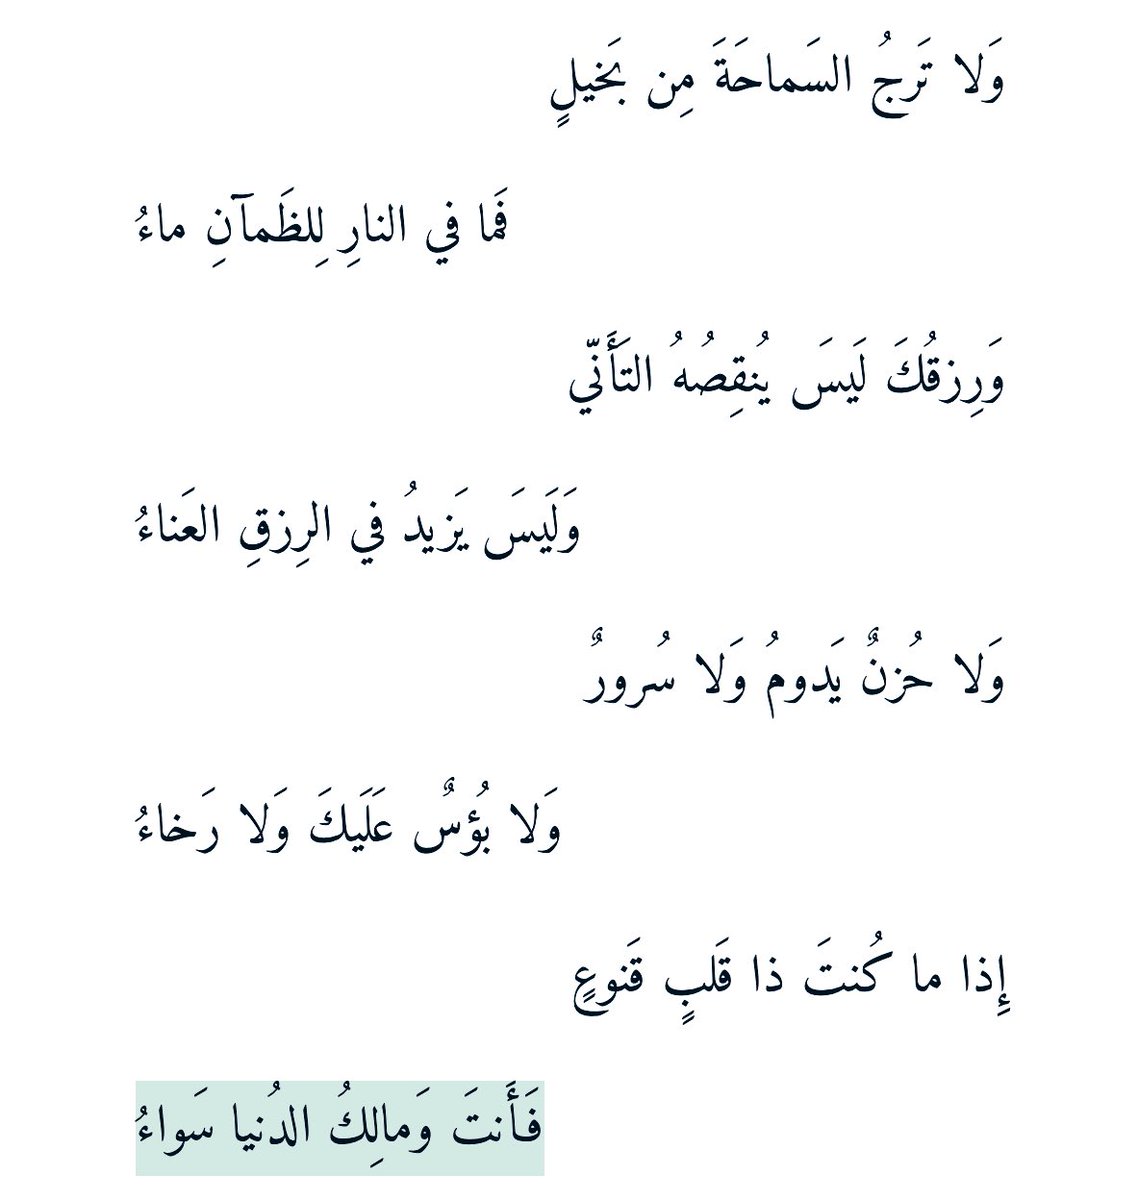 وَلا تَرجُ السَماحَةَ مِن بَخيلٍ
فَما في النارِ لِلظَمآنِ ماءُ
وَرِزقُكَ لَيسَ يُنقِصُهُ التَأَنّي
وَلَيسَ يَزيدُ في الرِزقِ العَناءُ
وَلا حُزنٌ يَدومُ وَلا سُرورٌ
وَلا بُؤسٌ عَلَيكَ وَلا رَخاءُ
إِذا ما كُنتَ ذا قَلبٍ قَنوعٍ
فَأَنتَ وَمالِكُ الدُنيا سَواءُ